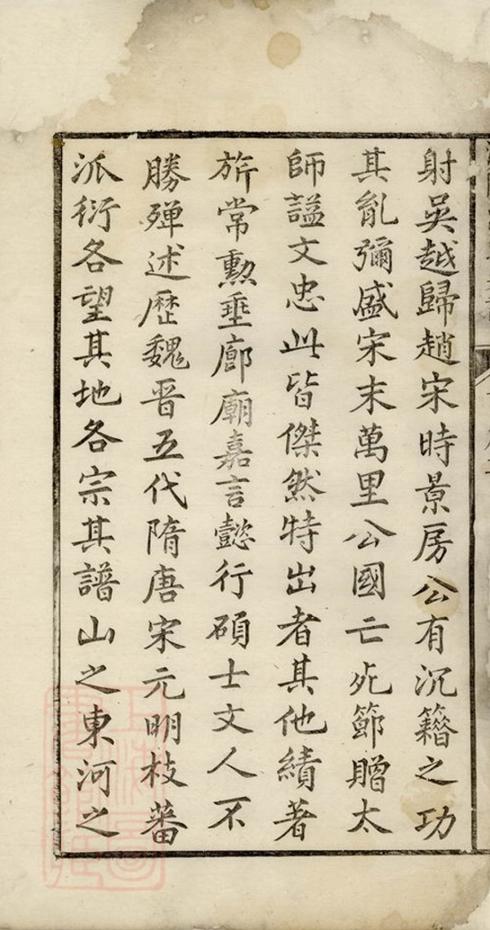 射吳越歸趙宋時景房公有沉籍之功
其胤彌盛宋末萬里公國亡死節贈太
師謚文忠此皆傑然特出者其他績著
旂常勳垂廊廟嘉言懿行碩士文人不
勝殫述歷魏晋五代隋唐宋元明枝蕃
派衍各望其地各宗其譜山之東河之